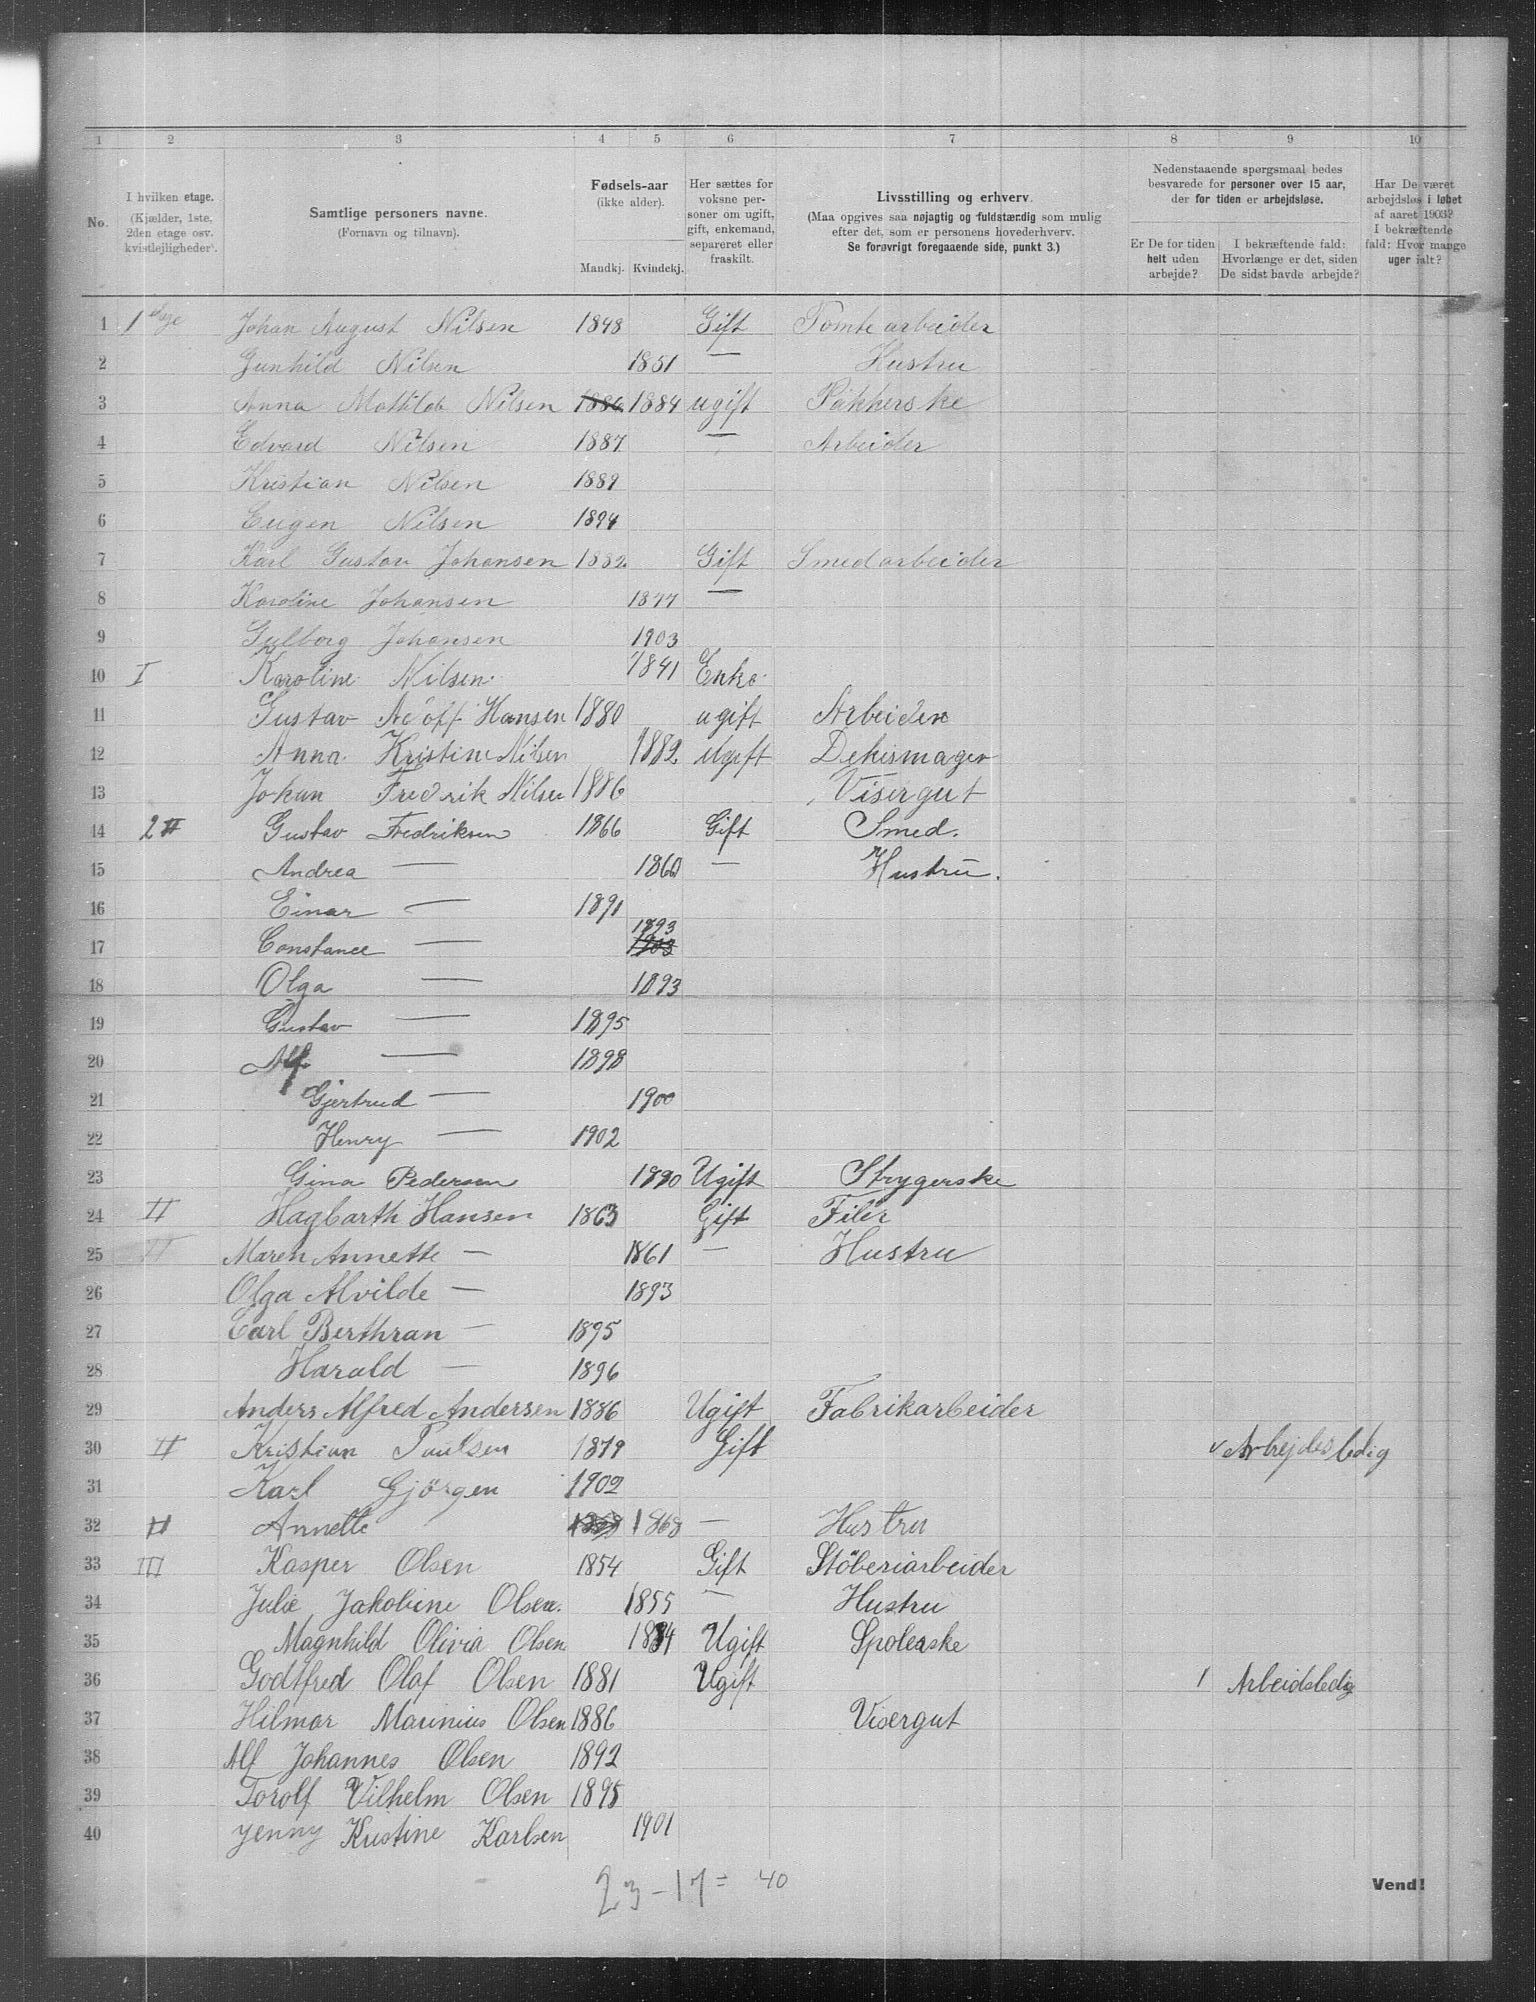 1 2 3 4 5 6 7 8 9 10
No.
I hvilken etage.
(Kjælder, 1ste,
2den etage osv.
kvistlejligheder).
Samtlige personers navne.
(Fornavn og tilnavn).
Fødsels-aar
(ikke alder).
Mandkj. Kvindekj.
Her sættes for
voksne per-
soner om ugift,
gift, enkemand,
separeret eller
fraskilt.
Livsstilling og erhverv.
(Maa opgives saa nøjagtig og fuldstændig som mulig
efter det, som er personens hovederhverv.
Se forøvrigt foregaaende side, punkt 3.)
Nedenstaaende spørgsmaal bedes
besvarede for personer over 15 aar,
der for tiden er arbejdsløse.
Er De for tiden
helt uden
arbejde?
I bekræftende fald:
Hvorlænge er det, siden
De sidst havde arbejde?
Har De været
arbejdsløs i løbet
af aaret 1903?
I bekræftende
fald: Hvor mange
uger ialt?
1 1 etage Johan August Nilsen 1848 Gift Tomtearbeider
2 Gunhild Nilsen 1851 — Hustru
3 Anna Mathilde Nilsen 1884 ugift Pakkerske
4 Edvard Nilsen 1887 — Arbeider
5 Kristian Nilsen 1889
6 Eugen Nilsen 1894
7 Karl Gustav Johansen 1882 Gift Smedarbeider
8 Karoline Johansen 1877 —
9 Gulborg Johansen 1903
10 I Karoline Nilsen. 1841 Enke.
11 Gustav Adolf Hansen 1880 ugift Arbeider
12 Anna Kristine Nilsen 1882 ugift Dekismager
13 Johan Fredrik Nilsen 1886 Visergut
14 2 II Gustav Fredriksen 1866 Gift Smed.
15 Andrea — 1860 — Hustru.
16 Einar — 1891
17 Constance — 1893 1903
18 Olga — 1893
19 Gustav — 1895
20 Alf — 1898
21 Gjertrud — 1900
22 Henry — 1902
23 Gina Pedersen 1880 Ugift Strygerske
24 II Hagbarth Hansen 1863 Gift Filer
25 II Maren Annette — 1861 — Hustru
26 Olga Alvilde — 1893
27 Carl Berthran — 1895
28 Harald — 1896
29 Anders Alfred Andersen 1886 Ugift Fabrikarbeider
30 II Kristian Paulsen 1879 Gift v Arbejdesledig
31 Karl Gjörgen 1902
32 II Annette 1868 — Hustru
33 III Kasper Olsen 1854 Gift Stöberiarbeider
34 Julie Jakobine Olsen. 1855 — Hustru
35 Magnhild Olivia Olsen 1884 Ugift Spolerske
36 Godtfred Olaf Olsen 1881 Ugift 1 Arbeidsledig
37 Hilmar Marinius Olsen 1886 Visergut
38 Alf Johannes Olsen 1892
39 Torolf Vilhelm Olsen 1895
40 Jenny Kristine Karlsen 1901
23 - 17 = 40
Vend!